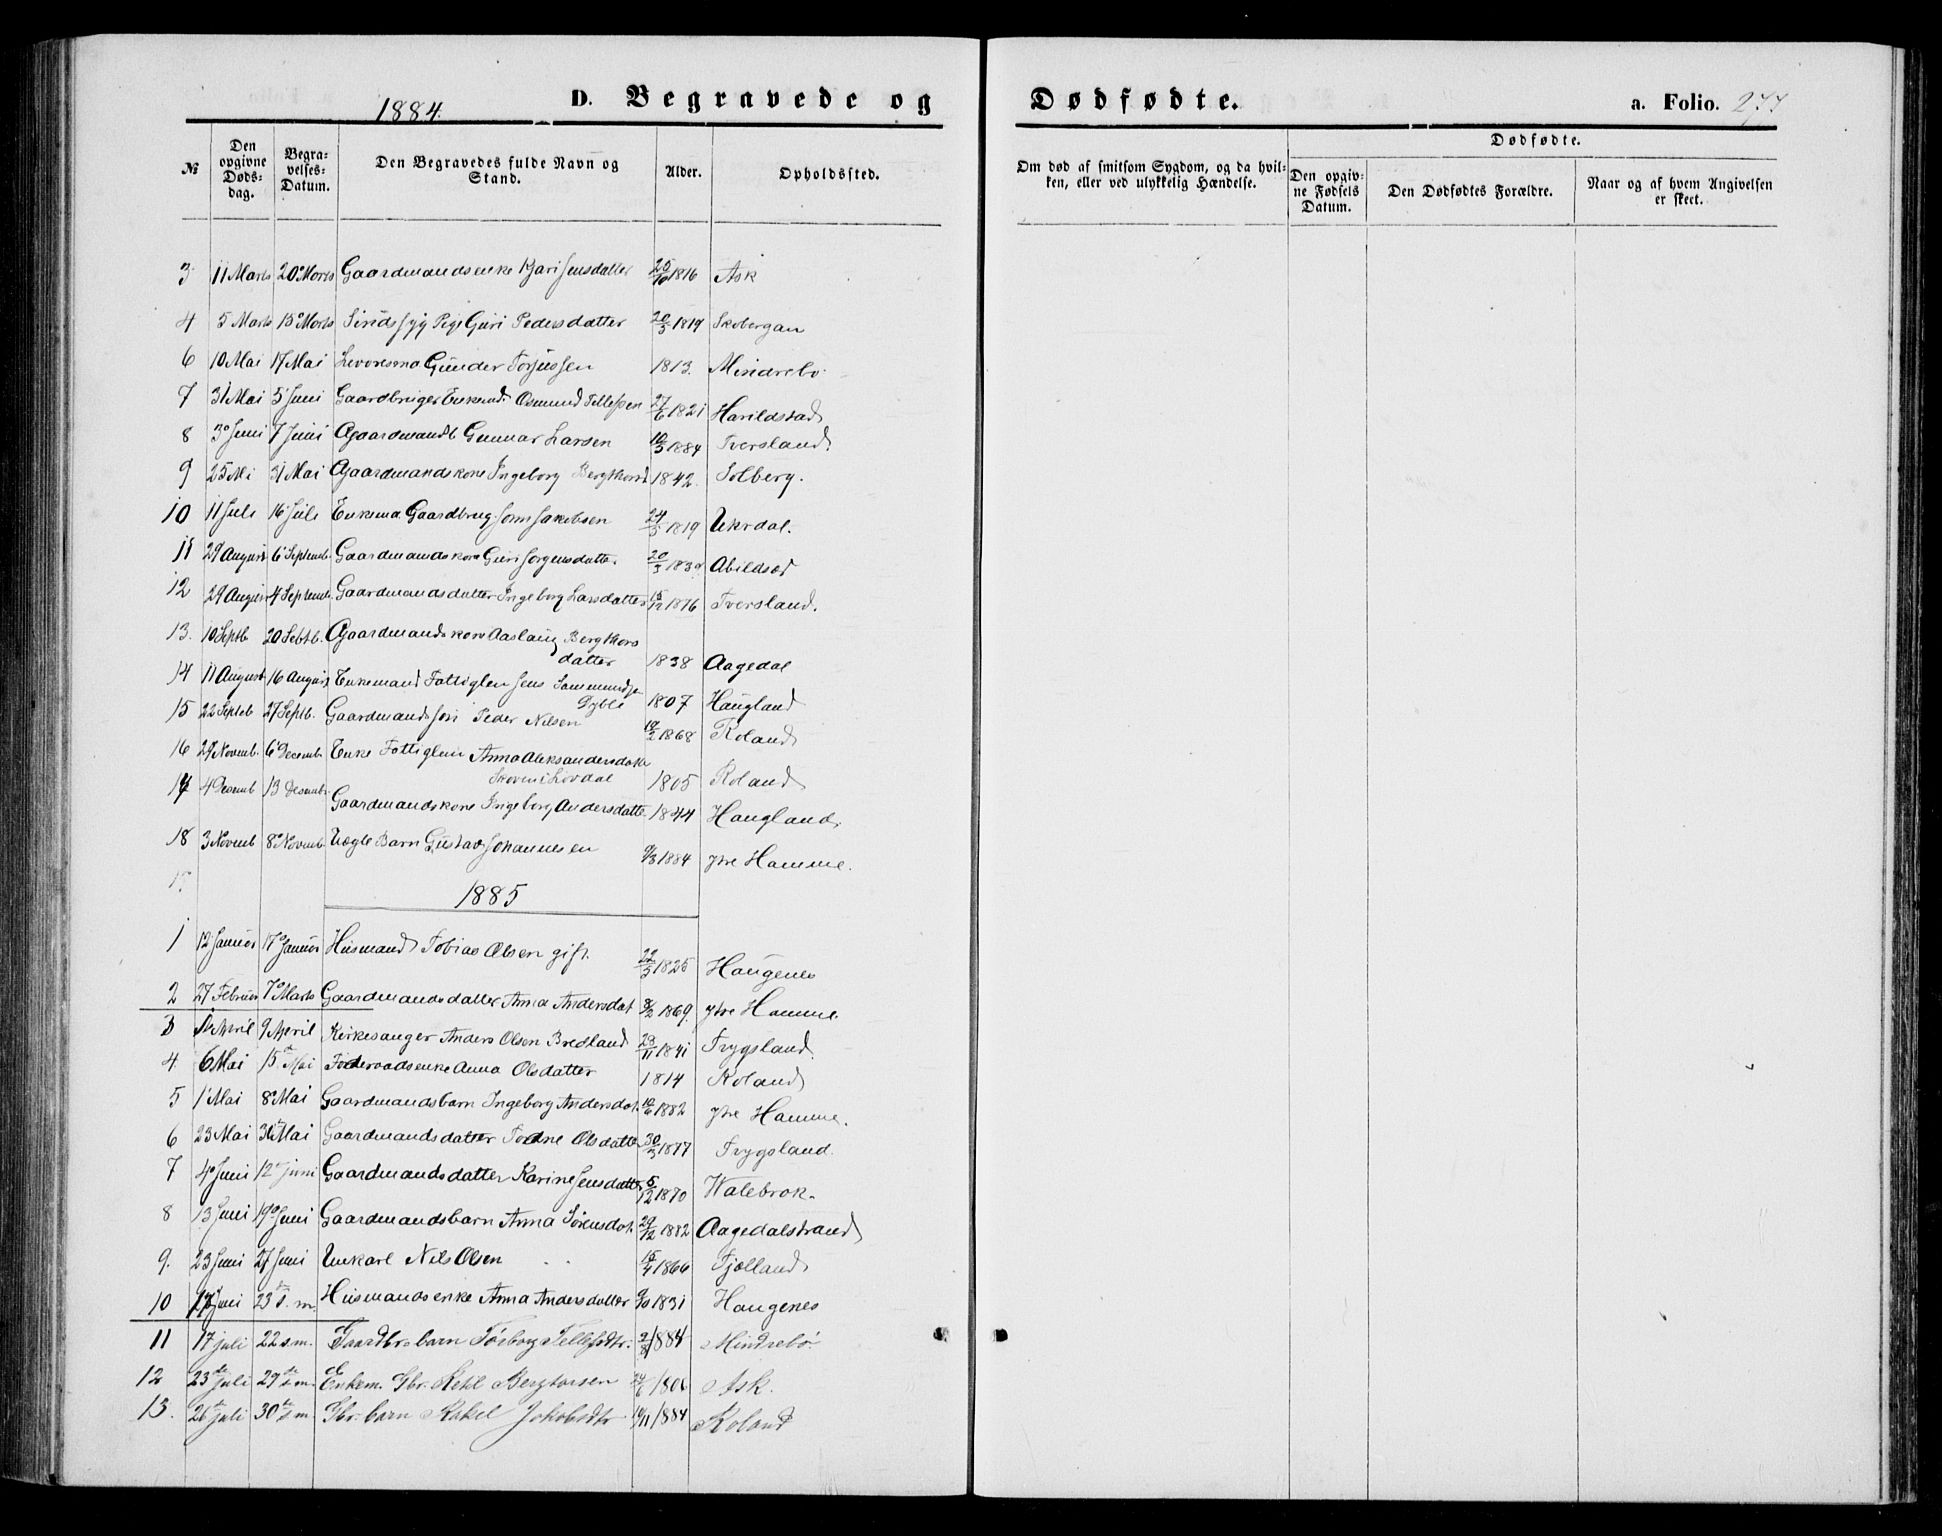 1884. D. Begravede og
Dødfødte. a. Folio. 277
№ Den opgivne Døds-dag. Begra-velses-Datum. Den Begravedes fulde Navn og Stand. Alder. Opholdssted.
Om død af smitsom Sygdom, og da hvil-ken, eller ved ulykkelig Hændelse. Dødfødte. Den opgiv-ne Fødsels Datum. Den Dødfødtes Forældre. Naar og af hvem Angivelsen er skeet.
3 11 Marts 20 Marts Gaardmandsenke Kjari Jensdatter 25/10 1816 Ask
4 5 Marts 15 Marts Sindssyg Pige Guri Pedersdatter 20/3 1819 Skobergan
6 10 Mai 17 Mai Gunder Torjussen 1813. Mindrebo
7 31 Mai 5 Juni Gaardbruger Enkemd. Osmund Tellefsen 27/6 1821 Harildstad
8 3 Juni 7 Juni Gaardmandb Gunnar Larsen 10/3 1884 Tversland
9 25 Mi 31 Mai Gaardmandskone Ingeborg Bergthorsd 1842. Solberg.
10 11 Juli 16 Juli Enkema. Gaardbrug. Jakobsen 24/5 1819 Urdal.
11 29 August 6 Septemb. Gaardmandskone Guri Jørgensdatter 20/3 1839 Abildsød
12 29 August 4 Septemb. Gaardmandsdatter Ingeborg Larsdatter 15/12 1876 Tversland.
13. 10 Septb 20 Sebtb. Gaardmandskone Aaslaug Bergthors
datter 1838 Aagedal
14 11 August 16 August Enkemand Fattiglem Jens
Dyble 1807 Haugland
15 22 Septeb 27 Septb. Gaardmandssøn Peder Nilsen 19/2 1868 Roland
16 29 Novemb. 6 Decemb. Enke Fattiglem Anna Aleksandersdatte
Skoven i Løvdal 1805 Roland
17 4 Decemb 13 Desemb. Gaardmandskone Ingeborg Andersdatte 1844 Haugland.
18 3 Novemb 8 Novemb. Uægte Barn Gustav Johannesen 9/3 1884 ytre Hamme.
1885
1 12 Januar 17 Januar Husmand Tobias Olsen gift. 22/5 1825 Haugenes
2 27 Februar 7 Marts Gaardmandsdatter Anna Andersdat 8/2 1869. ytre Hamme.
3 1 April 9 April Kirkesanger Anders Olsen Bredland 23/11 1841 Trygsland
4. 6 Mai 15 Mai Foderaadsenke Anna Olsdatter 1814 Roland
5 1 Mai 8 Mai Gaardmandsbarn Ingeborg Andersdat. 10/6 1882 ytre Hamme.
6 23 Mai 30 Mai Gaardmandsdatter Tordne Olsdatter 30/3 1877 Trygsland.
7 4 Juni 12 juni Gaardmandsdatter Karine Jensdatter 5/12 1870 Walebrok.
8 13 Juni 19 Juni Gaardmandsbarn Anna Sørensdat. 29/12 1882 Aagedalstrand
9. 23 Juni 27 Juni Unkarl Nils Olsen 15/4 1866 Fjelland
10 17 Juni 23 s. m. Husmandsenke Anna Andersdatter 9/10 1831 Haugenes
11 17 juli 22 s. m. Gaardbr. barn Torborg Tellefsdtr. 2/8 1884 Mindrebø.
12 23 juli 29 s. m. Enkem. Gbr. Ketil Bergtorsen 24/6 1806 Ask.
13. 26 juli 30 s. m. Gbr. barn Rakel Jakobsdtr 10/11 1884 Roland